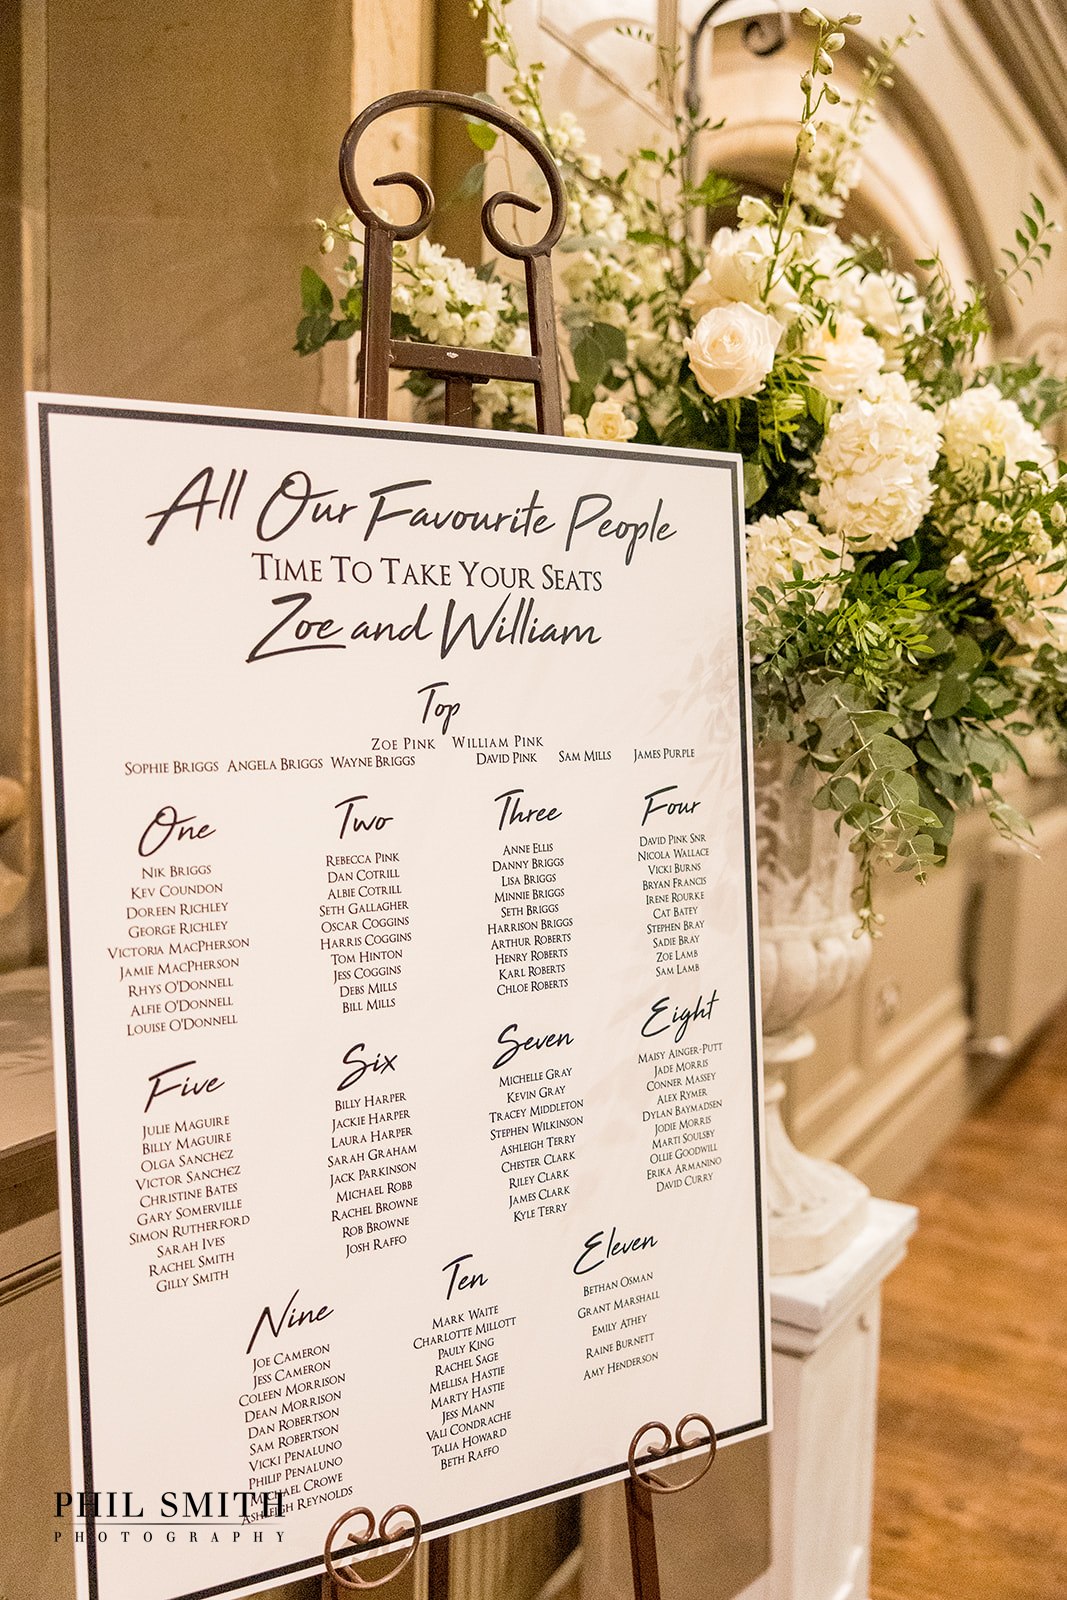 All Our Favourite People
Time To Take Your Seats
Zoe and William
Top
Zoe Pink William Pink
Sophie Briggs Angela Briggs Wayne Briggs David Pink Sam Mills James Purple
One
Nik Briggs
Kev Coundon
Doreen Richley
George Richley
Victoria MacPherson
Jamie MacPherson
Rhys O'Donnell
Alfie O'Donnell
Louise O'Donnell
Two
Rebecca Pink
Dan Cotrill
Albie Cotrill
Seth Gallagher
Oscar Coggins
Harris Coggins
Tom Hinton
Jess Coggins
Debs Mills
Bill Mills
Three
Anne Ellis
Danny Briggs
Lisa Briggs
Minnie Briggs
Seth Briggs
Harrison Briggs
Arthur Roberts
Henry Roberts
Karl Roberts
Chloe Roberts
Four
David Pink Snr
Nicola Wallace
Vicki Burns
Bryan Francis
Irene Rourke
Cat Batey
Stephen Bray
Sadie Bray
Zoe Lamb
Sam Lamb
Five
Julie Maguire
Billy Maguire
Olga Sanchez
Victor Sanchez
Christine Bates
Gary Somerville
Simon Rutherford
Sarah Ives
Rachel Smith
Gilly Smith
Six
Billy Harper
Jackie Harper
Laura Harper
Sarah Graham
Jack Parkinson
Michael Robb
Rachel Browne
Rob Browne
Josh Raffo
Seven
Michelle Gray
Kevin Gray
Tracey Middleton
Stephen Wilkinson
Ashleigh Terry
Chester Clark
Riley Clark
James Clark
Kyle Terry
Eight
Maisy Ainger-Putt
Jade Morris
Conner Massey
Alex Rymer
Dylan Baymadsen
Jodie Morris
Marti Soulsby
Ollie Goodwill
Erika Armanino
David Curry
Nine
Joe Cameron
Jess Cameron
Coleen Morrison
Dean Morrison
Dan Robertson
Sam Robertson
Vicki Penaluno
Philip Penaluno
Michael Crowe
Ashleigh Reynolds
Ten
Mark Waite
Charlotte Millott
Pauly King
Rachel Sage
Mellisa Hastie
Marty Hastie
Jess Mann
Vali Condrache
Talia Howard
Beth Raffo
Eleven
Bethan Osman
Grant Marshall
Emily Athey
Raine Burnett
Amy Henderson
PHIL SMITH
PHOTOGRAPHY